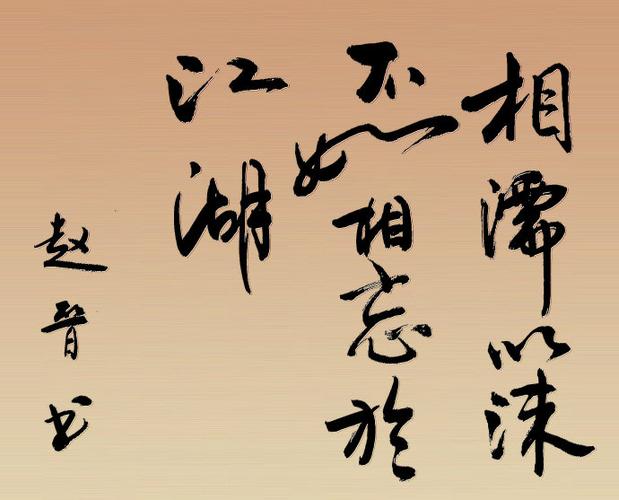 相濡以沫
不如相忘於
江湖
赵晋书